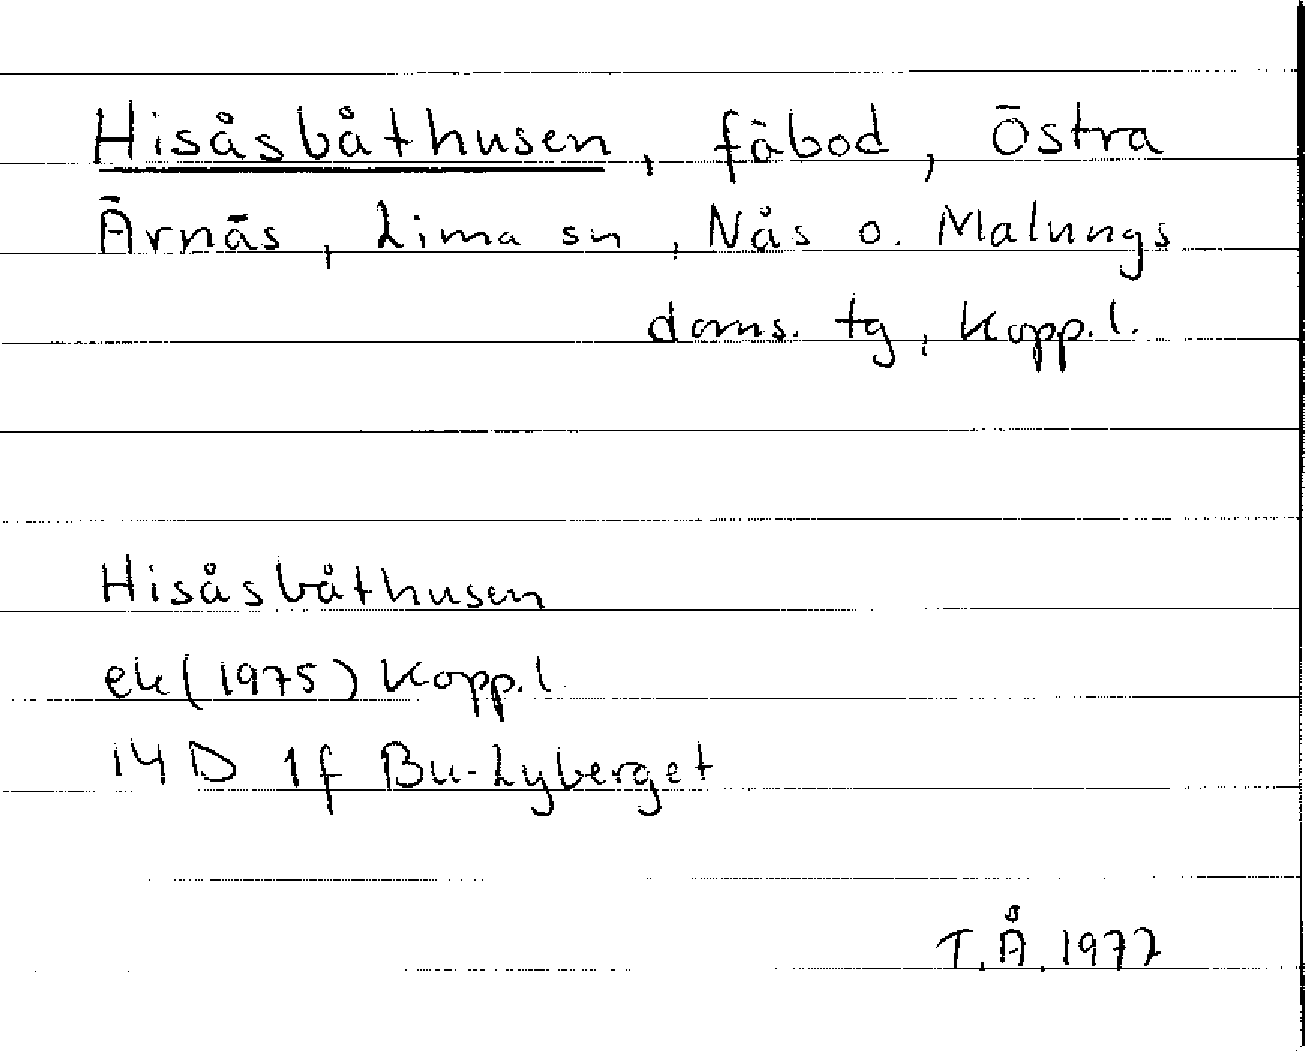 Hisåsbåthusen, fäbod, Östra
Ärnäs, Lima sn, Nås o. Malungs
doms. tg, Kopp.l.
Hisåsbåthusen
ek(1975) Kopp.l
14 D 1f Bu-Lyberget
T.Å.1977